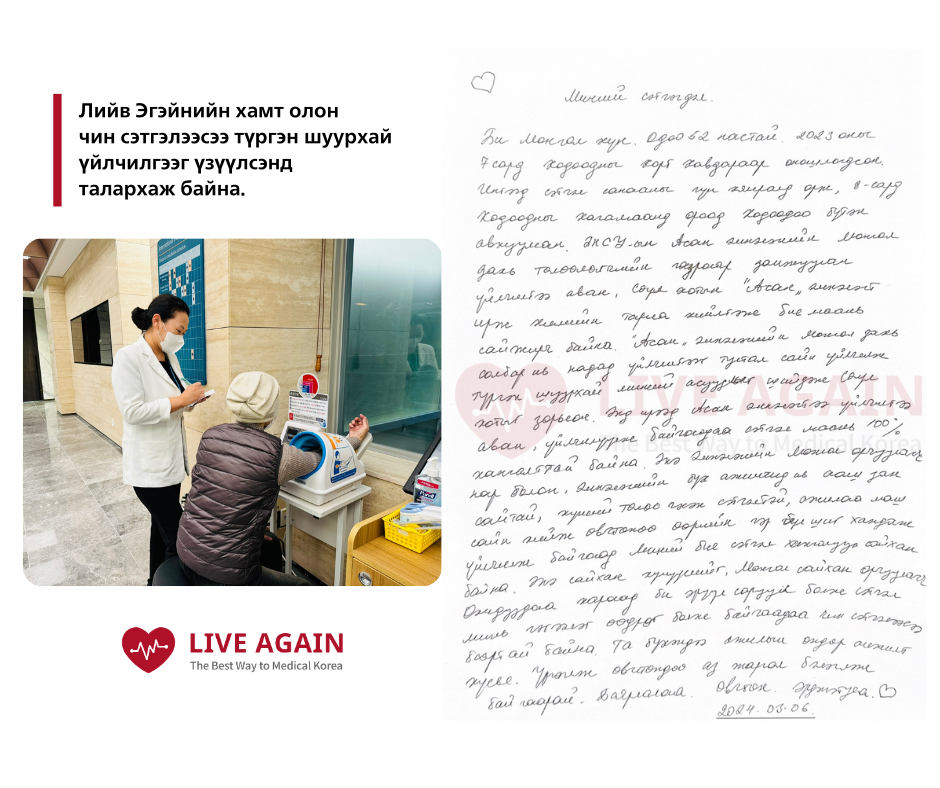 Лийв Эгэйнийн хамт олон
чин сэтгэлээсээ түргэн шуурхай
үйлчилгээг үзүүлсэнд
талархаж байна.
LIVE AGAIN
The Best Way to Medical Korea
Миний сэтгэгдэл.
Би Монгол хүн. Одоо 62 настай. 2023 оны
7 сард ходоодны хорт хавдараар оношлогдсон.
Ингээд сэтгэл санааны гүн хямралд орж, 8-сард
ходоодны хагалгаанд ороод ходоодоо бүтэн
авхуулсан. Асан эмнэлэгийн Монгол
дахь төлөөлөгчийн газраар дамжуулан
үйлчилгээ аван, Сөүл хотын "Асан" эмнэлэгт
ирж химийн тариа хийлгэж бие маань
сайжирч байна. "Асан" эмнэлэгийн Монгол дахь
салбар нь надад үйлчилгээг туйлын сайн үйлчилж
түргэн шуурхай миний асуудлыг шийдэж Сөүл
хотыг зорьсон. Энд ирээд Асан эмнэлэгээ үйлчилгээ
аван, үйлчлүүлж байгаадаа сэтгэл маань 100%
хангалттай байна. Энэ эмнэлэгийн Монгол орчуулагч
нар болон, эмнэлэгийн бүх ажилчид нь ааш зан
сайтай, хүний төлөө гэсэн сэтгэлтэй, ажилаа маш
сайн хийж өвчтөнөө өөрийн гэр бүл шиг хандаж
үйлчилж байгаад миний бие сэтгэл ханамжтай сайхан
байна. Энэ сайхан хүмүүсийг, Монгол сайхан орчуулагч
охидуудаа хараад би эрүүл саруул болж сэтгэл
минь гэгээлэг өөдрөг болж байгаадаа чин сэтгэлээсээ
баяртай байна. Та бүхэндээ ажилын өндөр амжилт
хүсье. Үргэлж өвчтөндөө аз жаргал бэлэглэж
байгаарай. Баярлалаа. Өвчтөн.
2024. 03. 06.
LIVE AGAIN
The Best Way to Medical Korea